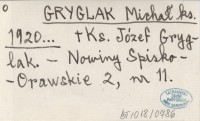 GRYGLAK Michał ks.
1920... †Ks. Józef Gryg-
lak. – Nowiny Spisko-
-Orawskie 2, nr 11.